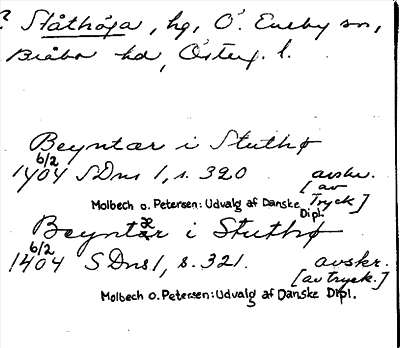 ? Slåthöga, hg, Ö. Eneby sn,
Bråbo hd, Österg. l.
Beyntær i Stuthø
6/2
1404 SDns 1, s. 320 avskr.
[av
Molbech o. Petersen: Udvalg af Danske Dipl. Tryck]
Beyntær i Stuthø
6/2
1404 SDns 1, s. 321. avskr.
[av tryck.]
Molbech o. Petersen: Udvalg af Danske Dipl.